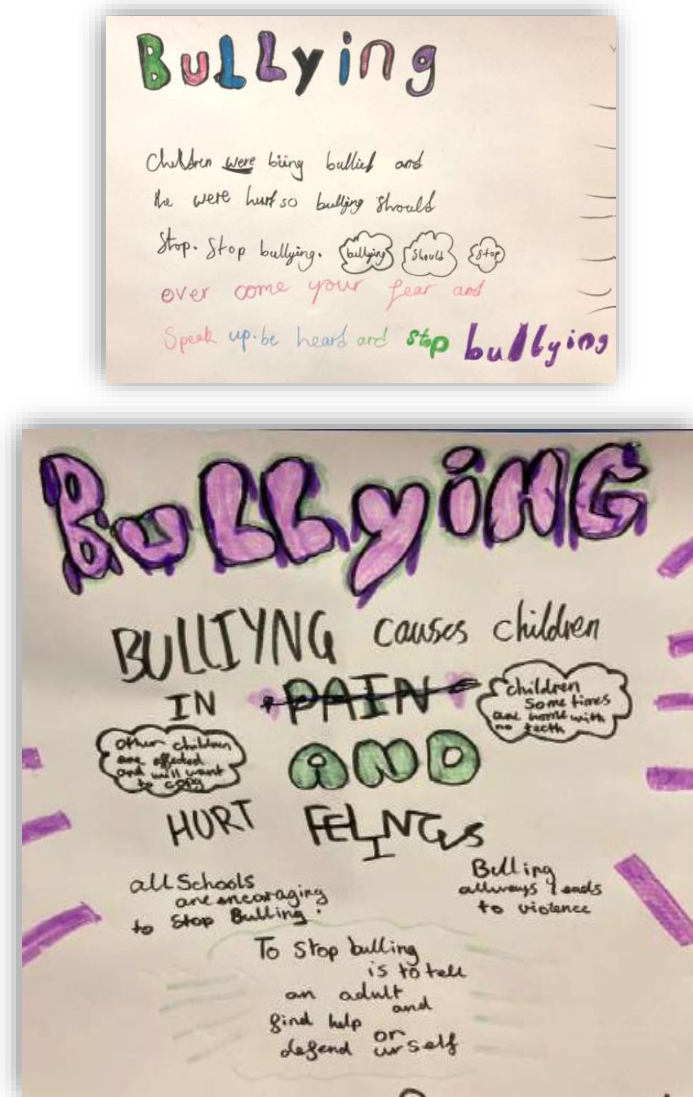 BuLLying
Children were biing bullied and
the were hurt so bullying should
Stop. Stop bullying. bullying should stop
over come your fear and
Speak up. be heard and stop bullying
BuLLyiNG
BULLIYNG causes children
IN PAIN
children
Some times
are home with
no teeth
other children
are effected
and will want
to copy
AND
HURT FELINGS
all Schools
are encoraging
to Stop Bulling.
Bulling
allways leads
to violence
To Stop bulling
is to tell
an adult
and
find help
or
defend urself